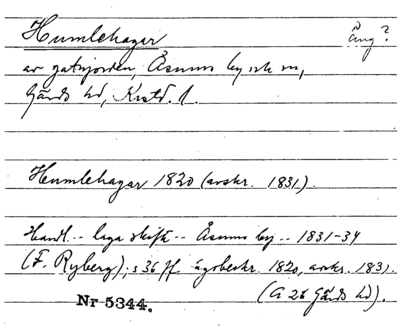 Humlehagar Äng?
av gatujorden, Åsums by och sn,
Gärds hd, Krstd. l.
Humlehagar 1820 (avskr. 1831).
Handl... laga skifte... Åsums by... 1831-34
(F. Ryberg); s 36 ff. ägobeskr. 1820, avskr. 1831.
(A 26 Gärds hd).
Nr 5344.